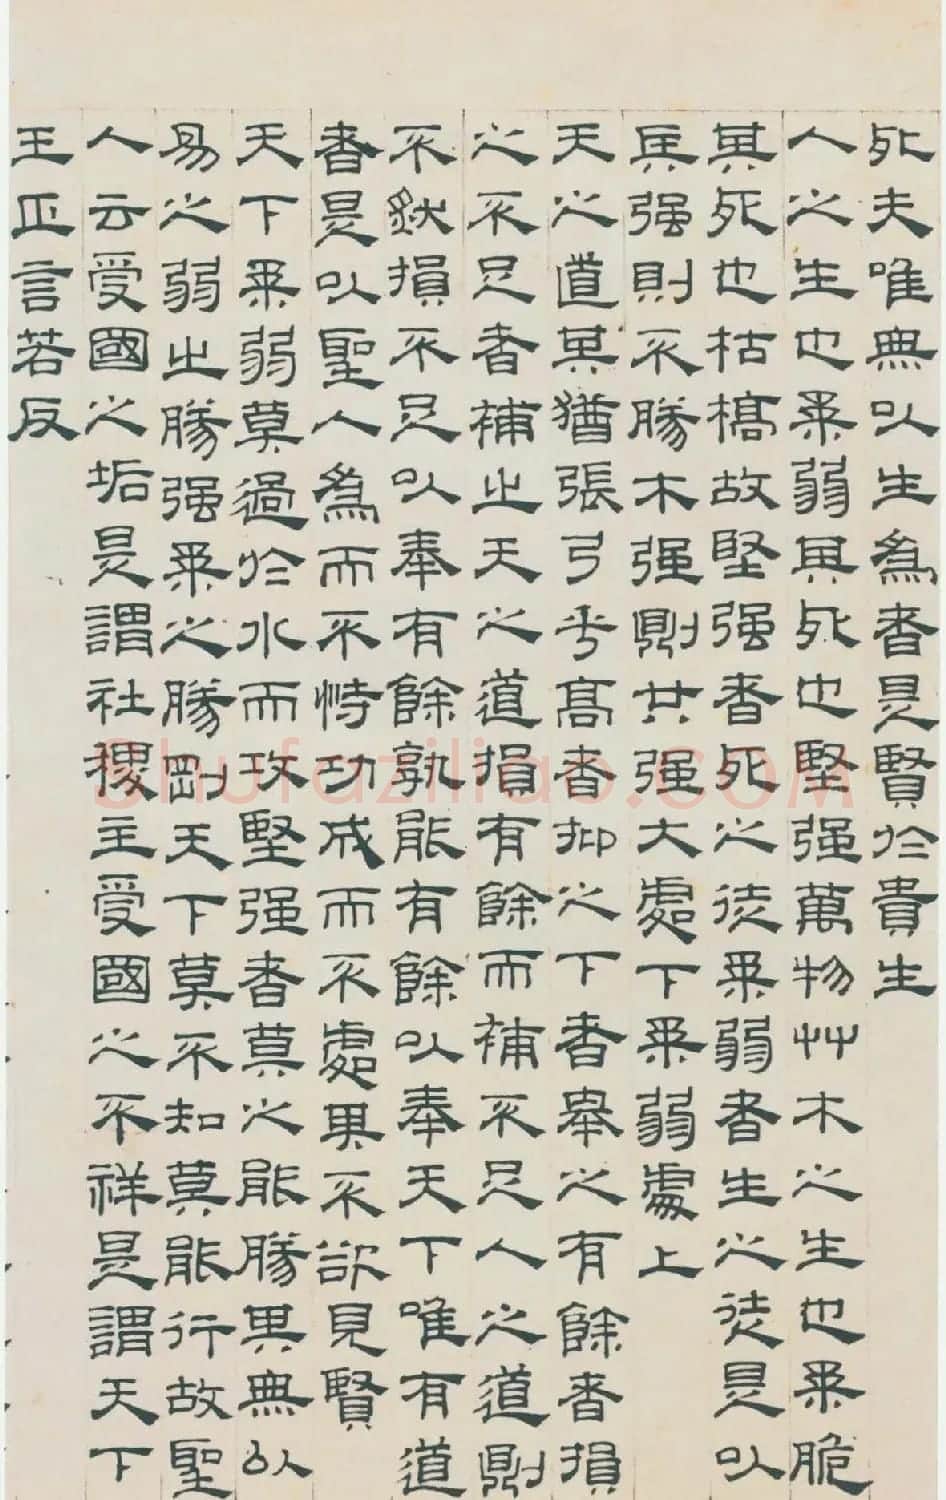 死夫唯無以生爲者是賢於貴生
人之生也柔弱其死也堅强萬物艸木之生也柔脆
其死也枯槁故堅强者死之徒柔弱者生之徒是以
兵强則不勝木强則共强大處下柔弱處上
天之道其猶張弓乎高者抑之下者舉之有餘者損
之不足者補之天之道損有餘而補不足人之道則
不然損不足以奉有餘孰能有餘以奉天下唯有道
者是以聖人爲而不恃功成而不處其不欲見賢
天下柔弱莫過於水而攻堅强者莫之能勝其無以
易之弱之勝强柔之勝剛天下莫不知莫能行故聖
人云受國之垢是謂社稷主受國之不祥是謂天下
王正言若反
Shufaziliao.COM